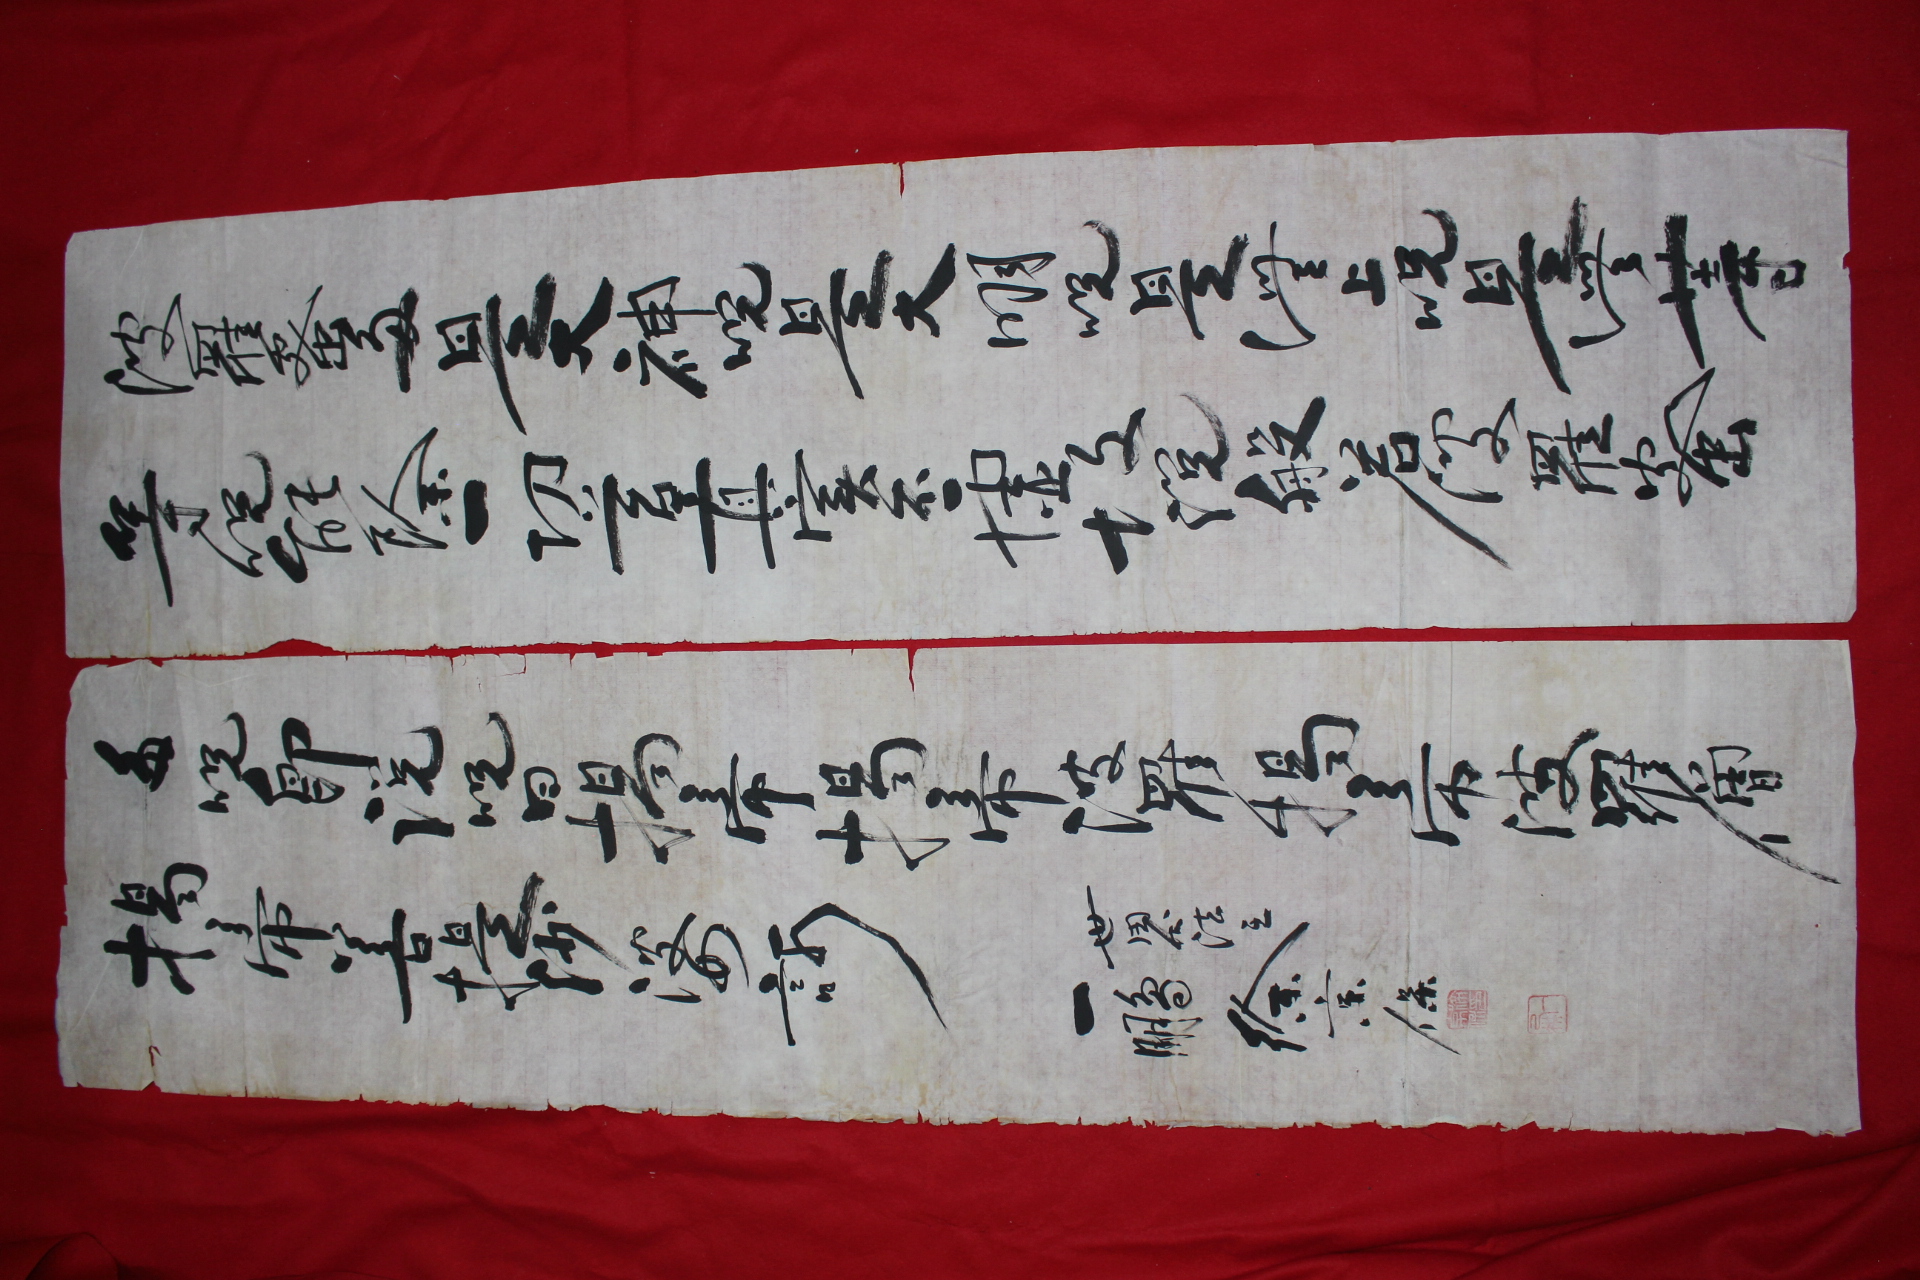 波羅蜜多是大神呪是大明呪是無上呪是無等
等呪能除一切苦真實不虛故說般若波羅蜜
多呪即說呪曰揭帝揭帝波羅揭帝波羅僧
揭帝菩提沙婆訶
世界仏法王
一鵬 徐京保